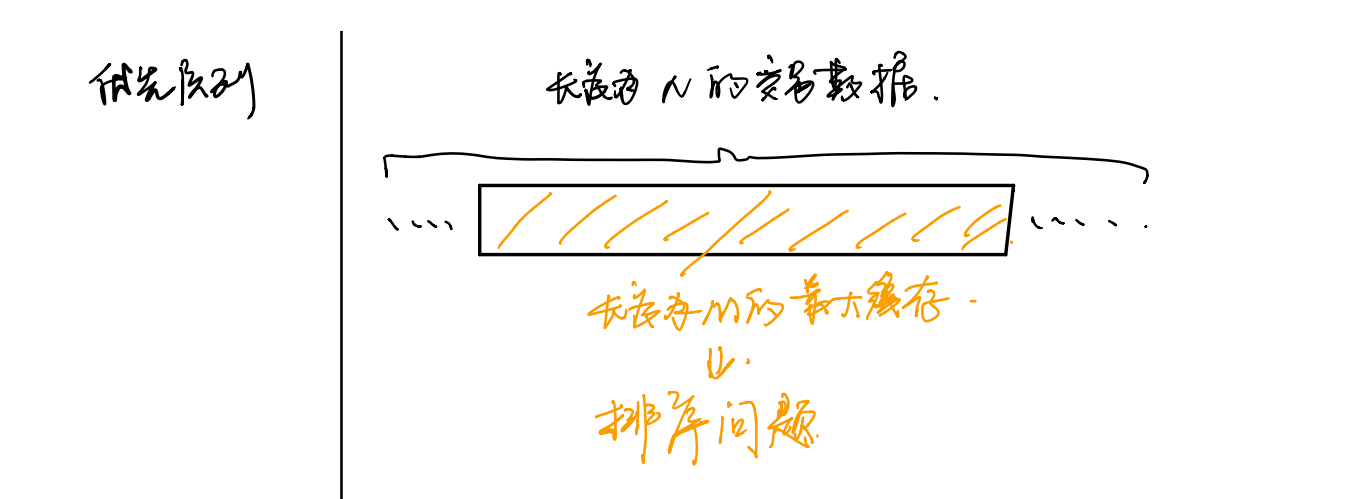 优先队列
长度为 N 的交易数据.
长度为 M 的最大缓存.
排序问题